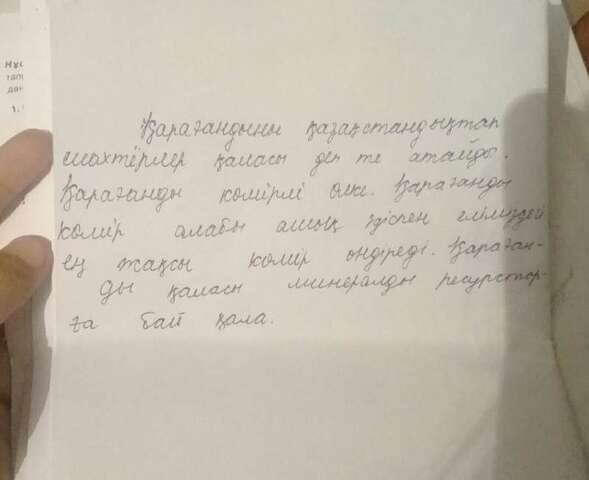 Нұс
тап
дан
1.
Қарағандыны қазақстандықтар
шахтёрлер қаласы деп те атайды.
Қарағанды көмірлі өлке. Қарағанды
көмір алабы ашық әдіспен еліміздей
ең жақсы көмір өндіреді. Қараған-
ды қаласы минералды ресурстар-
ға бай қала.